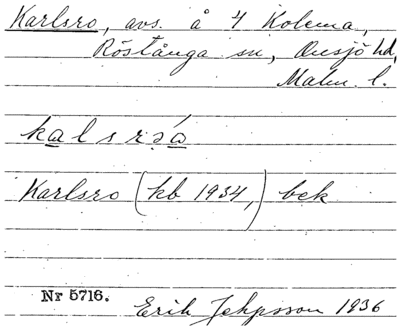 Karlsro, avs. å 4 Kolema,
Röstånga sn, Onsjö hd,
Malm. l.
kalsrəa
Karlsro (kb 1934,) bek
Nr 5716.
Erik Jeppsson 1936